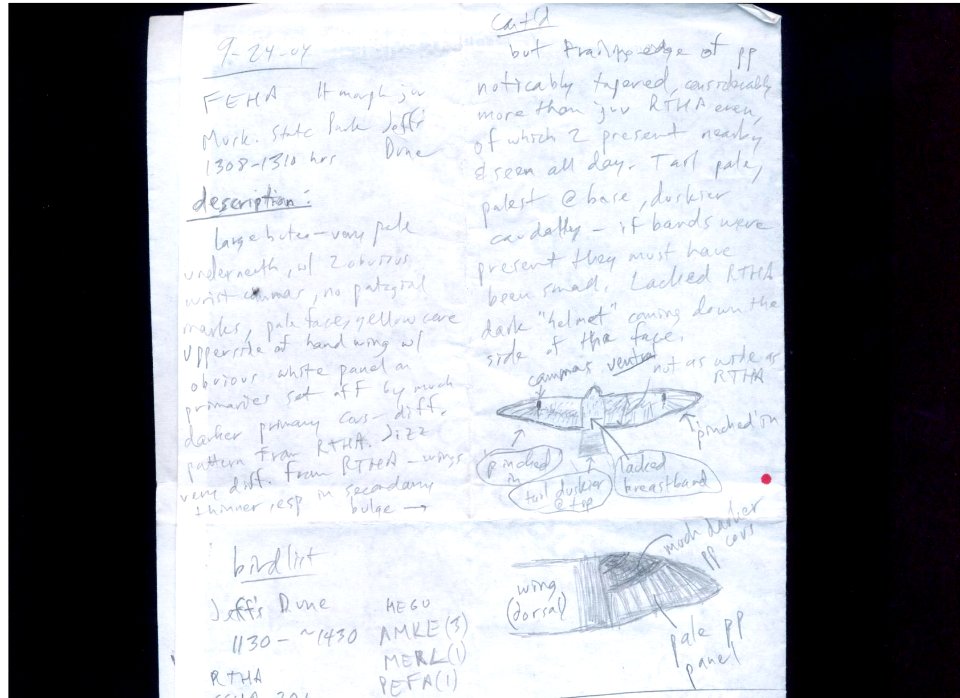 9-24-04
FEHA lt morph juv
Musk. State Park Jeff's
1308-1310 hrs Dune
description:
large buteo - very pale
underneath, w/ 2 obvious
wrist commas, no patagial
marks, pale face, yellow cere
upperside of hand wing w/
obvious white panel on
primaries set off by much
darker primary covs - diff.
pattern from RTHA. Jizz
very diff. from RTHA - wings
thinner, esp in secondary
bulge →
cont'd
but trailing edge of pp
noticably tapered, considerably
more than juv RTHA even,
of which 2 present nearby
& seen all day. Tail pale,
palest @ base, duskier
caudally - if bands were
present they must have
been small. Lacked RTHA
dark "helmet" coming down the
side of the face.
commas ventral
not as wide as
RTHA
pinched in
pinched
in
tail duskier
@ tip
lacked
breastband
birdlist
Jeff's Dune
1130 - ~1430
RTHA
HEGU
AMKE (3)
MERL (1)
PEFA (1)
wing
(dorsal)
much darker
pp covs
pale pp
panel